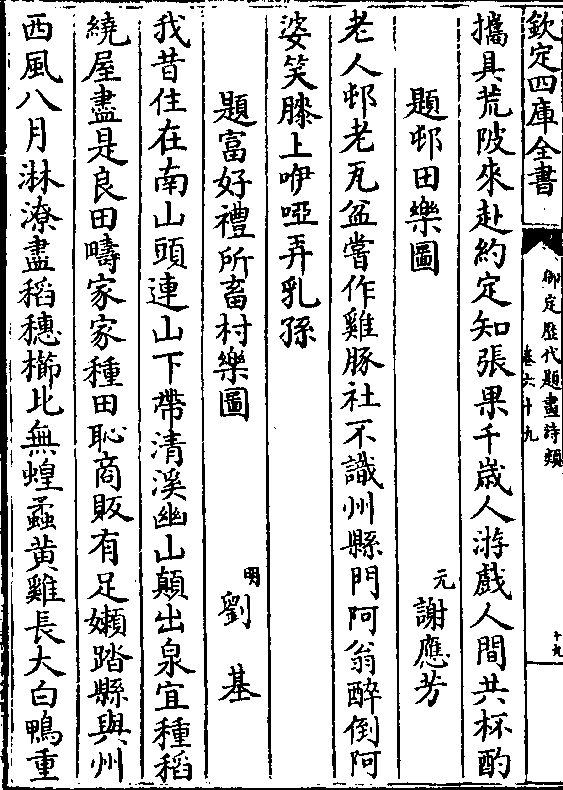 欽定四庫全書
御定歷代題畫詩類
卷六十九
十九
攜具荒陂來赴約定知張果千歲人游戲人間共杯酌
題邨田樂圖
元 謝應芳
老人邨老瓦盆嘗作雞豚社不識州縣門阿翁醉倒阿
婆笑膝上咿啞弄乳孫
題富好禮所畜村樂圖
明 劉基
我昔住在南山頭連山下帶清溪幽山顛出泉宜種稻
繞屋盡是良田疇家家種田恥商販有足嬾踏縣與州
西風八月淋潦盡稻穗櫛比無蝗蟊黃雞長大白鴨重